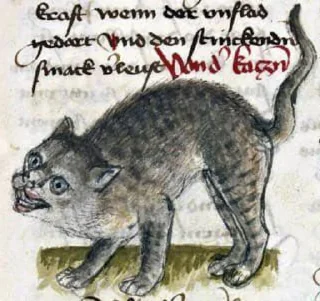 krafft wenn der vnflad
gedort Vnd den stinckendn
smack v̄leust Von d' kaczn